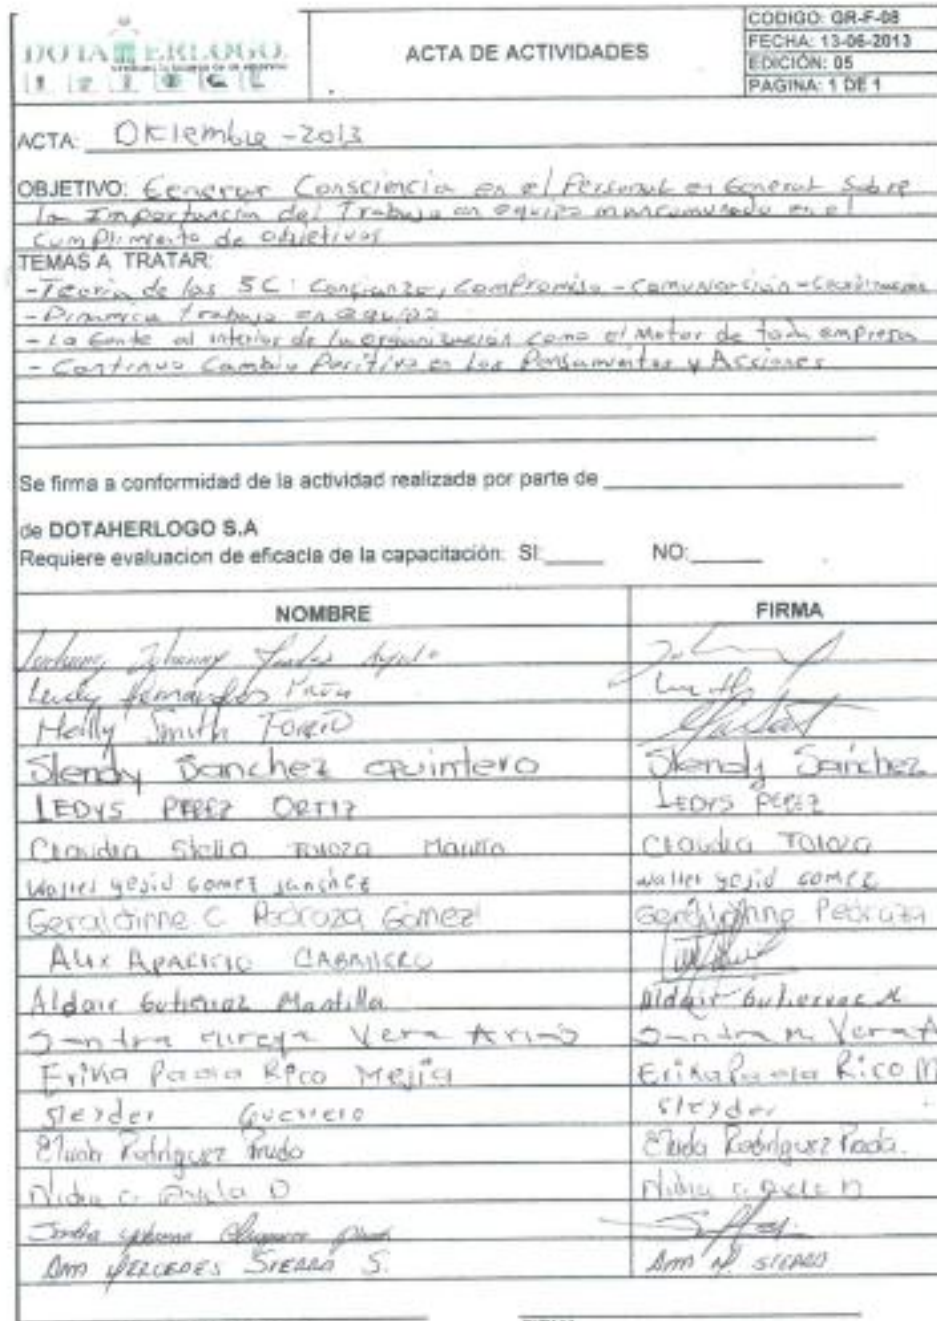 DOTAHERLOGO.
ACTA DE ACTIVIDADES
CODIGO: GR-F-08
FECHA: 13-06-2013
EDICIÓN: 05
PAGINA: 1 DE 1
ACTA: Diciembre - 2013
OBJETIVO: Generar Consciencia en el Personal en General Sobre
la Importancia del Trabajo en equipo mancomunado en el
Cumplimiento de objetivos
TEMAS A TRATAR:
- Teoria de las 5C: Confianza, Compromiso - Comunicación - Coordinación
- Dinamica trabajo en equipo
- La Gente al interior de la organización como el Motor de toda empresa
- Continuo Cambio Positivo en los Pensamientos y Acciones
Se firma a conformidad de la actividad realizada por parte de
de DOTAHERLOGO S.A
Requiere evaluacion de eficacia de la capacitación: SI: NO:
NOMBRE FIRMA
Leidy Fernandez
Heilly Smith
Slendy Sanchez Quintero Slendy Sanchez
LEDYS PEREZ ORTIZ LEDYS PEREZ
Claudia Stella Toloza Claudia Toloza
Walter yesid Gomez sanchez Walter yesid Gomez
Geraldinne C Pedroza Gomez Geraldinne Pedroza
Alix APARICIO CABALLERO
Aldair Gutierrez Mantilla Aldair Gutierrez M
Sandra Mireya Vera Arias Sandra M Vera A
Erika Paola Rico Mejia Erika Paola Rico M
Sleyder Guerrero Sleyder
Rodriguez Prada Rodriguez Prada.
Nidia C. Ayala D Nidia C. Ayala D
Ana MERCEDES SIERRA S. Ana M. SIERRA